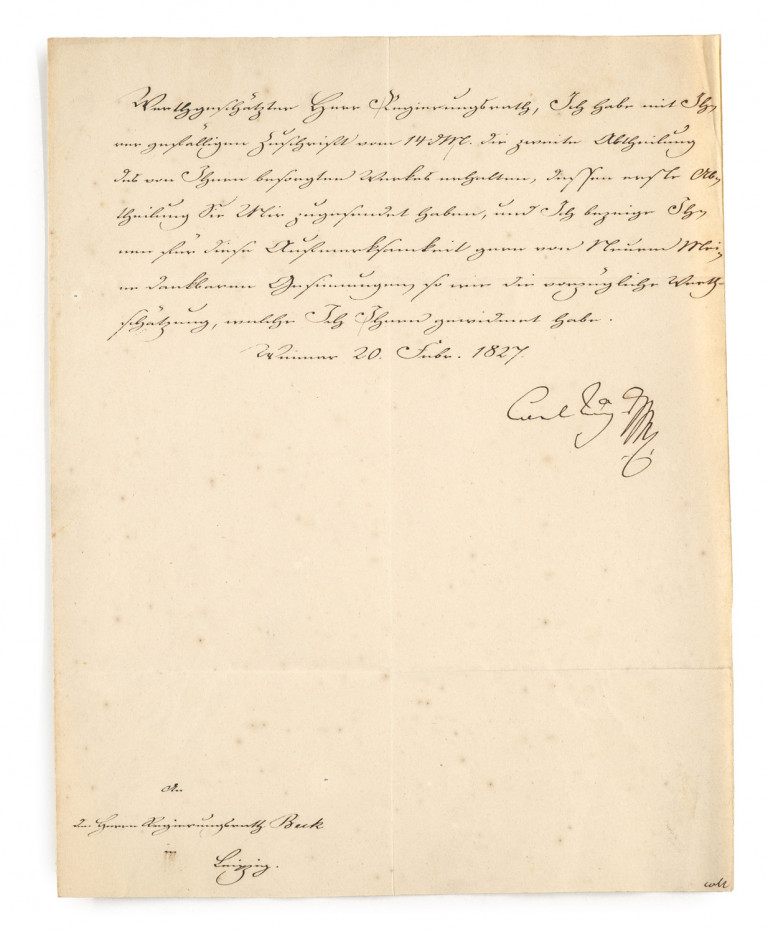 Werthgeschätzter Herr Regierungsrath, Ich habe mit Ih,
rer gefälligen Zuschrift vom 14 d.M. die zweite Abtheilung
des von Ihnen besorgten Werkes erhalten, dessen erste Ab,
theilung Sie Mir zugesendet haben, und Ich bezeige Ih,
nen für diese Aufmerksamkeit gern von Neuem Mei,
ne dankbaren Gesinnungen, so wie die vorzügliche Werth-
schätzung, welche Ich Ihnen gewidmet habe.
Weimar 20. Febr. 1827.
Carl Aug
An
den Herrn Regierungsrath Beck
in
Leipzig.